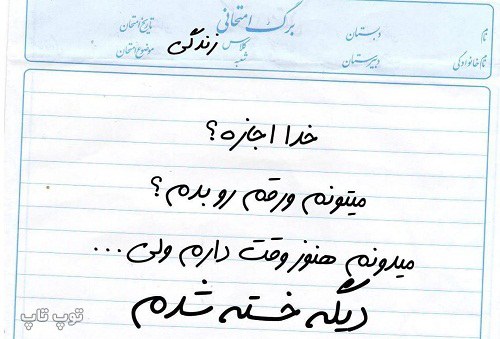 برگ امتحانی
نام دبستان تاریخ امتحان
نام خانوادگی دبیرستان کلاس شعبه موضوع امتحان زندگی
خدا اجازه؟
میتونم ورقم رو بدم؟
میدونم هنوز وقت دارم ولی...
دیگه خسته شدم
توپ تاپ